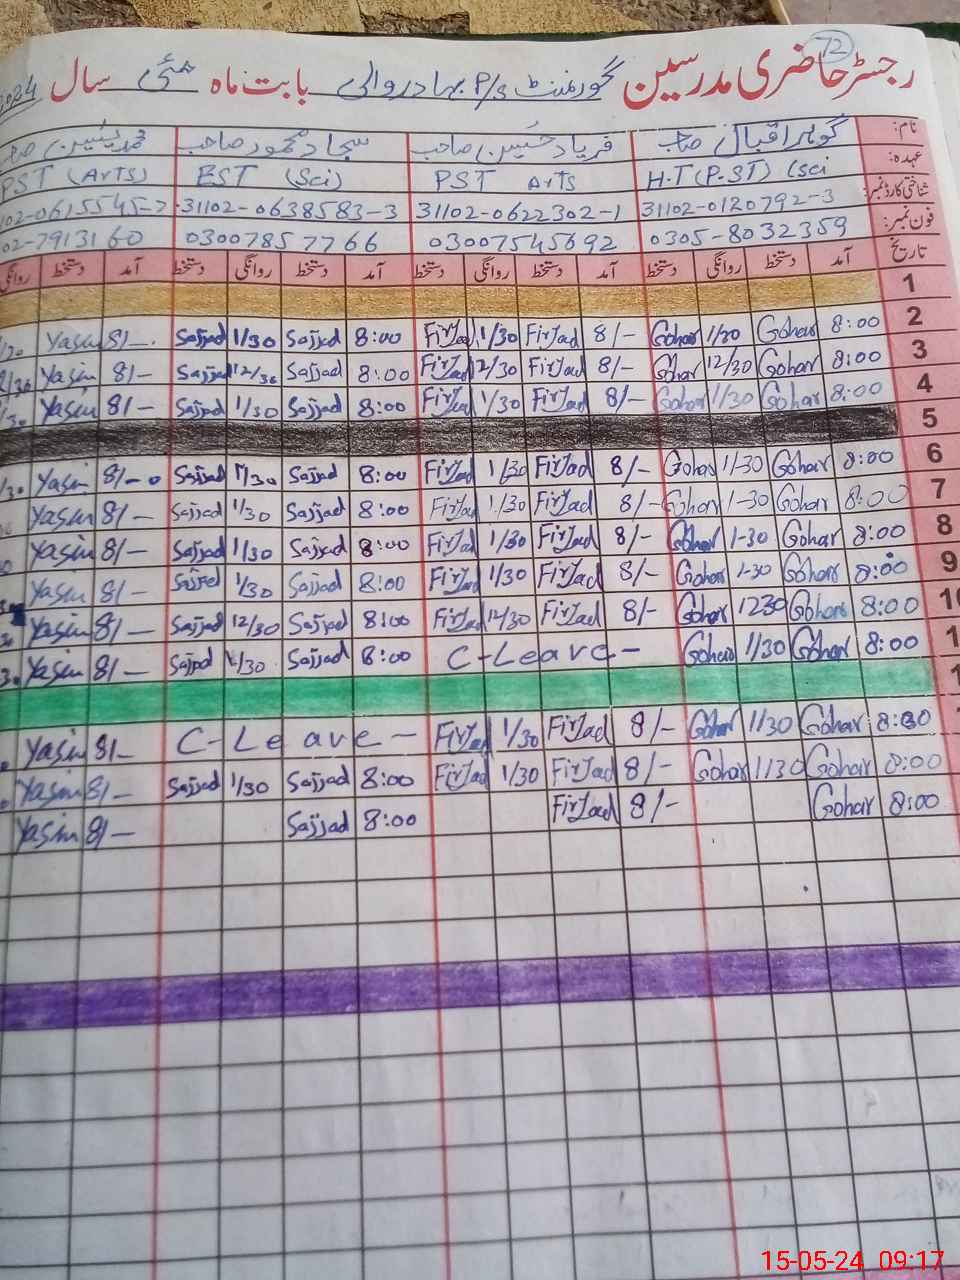 72
رجسٹر حاضری مدرسین گورنمنٹ P/S بہادر والی بابت ماہ مئی سال 2024
نام: گوہر اقبال صاحب فریاد حسین صاحب سجاد محمود صاحب محمد یٰسین
عہدہ: H.T (P.ST) (Sci PST Arts EST (Sci) PST (Arts)
شناختی کارڈ نمبر: 31102-0120792-3 31102-0622302-1 31102-0638583-3 102-0615545-7
فون نمبر: 0305-8032359 03007545692 03007857766 02-7913160
تاریخ آمد دستخط روانگی دستخط آمد دستخط روانگی دستخط آمد دستخط روانگی دستخط آمد دستخط روانگی
1
2 8:00 Gohar 1/30 Gohar 8/- Firyad 1/30 Firyad 8:00 Sajjad 1/30 Sajjad 8/- Yasin
3 8:00 Gohar 12/30 Gohar 8/- Firyad 12/30 Firyad 8:00 Sajjad 12/30 Sajjad 8/- Yasin
4 8:00 Gohar 1/30 Gohar 8/- Firyad 1/30 Firyad 8:00 Sajjad 1/30 Sajjad 8/- Yasin
5
6 8:00 Gohar 1/-30 Gohar 8/- Firyad 1/30 Firyad 8:00 Sajjad 1/30 Sajjad 8/- Yasin
7 8:00 Gohar 1-30 Gohar 8/- Firyad 1/30 Firyad 8:00 Sajjad 1/30 Sajjad 8/- Yasin
8 8:00 Gohar 1-30 Gohar 8/- Firyad 1/30 Firyad 8:00 Sajjad 1/30 Sajjad 8/- Yasin
9 8:00 Gohar 1-30 Gohar 8/- Firyad 1/30 Firyad 8:00 Sajjad 1/30 Sajjad 8/- Yasin
10 8:00 Gohar 1230 Gohar 8/- Firyad 12/30 Firyad 8:00 Sajjad 12/30 Sajjad 8/- Yasin
1 8:00 Gohar 1/30 Gohar C-Leave- 8:00 Sajjad 1/30 Sajjad 8/- Yasin
1
8:00 Gohar 1/30 Gohar 8/- Firyad 1/30 Firyad C-Leave- 8/- Yasin
8:00 Gohar 1130 Gohar 8/- Firyad 1/30 Firyad 8:00 Sajjad 1/30 Sajjad 8/- Yasin
8:00 Gohar 8/- Firyad 8:00 Sajjad 8/- Yasin
15-05-24 09:17